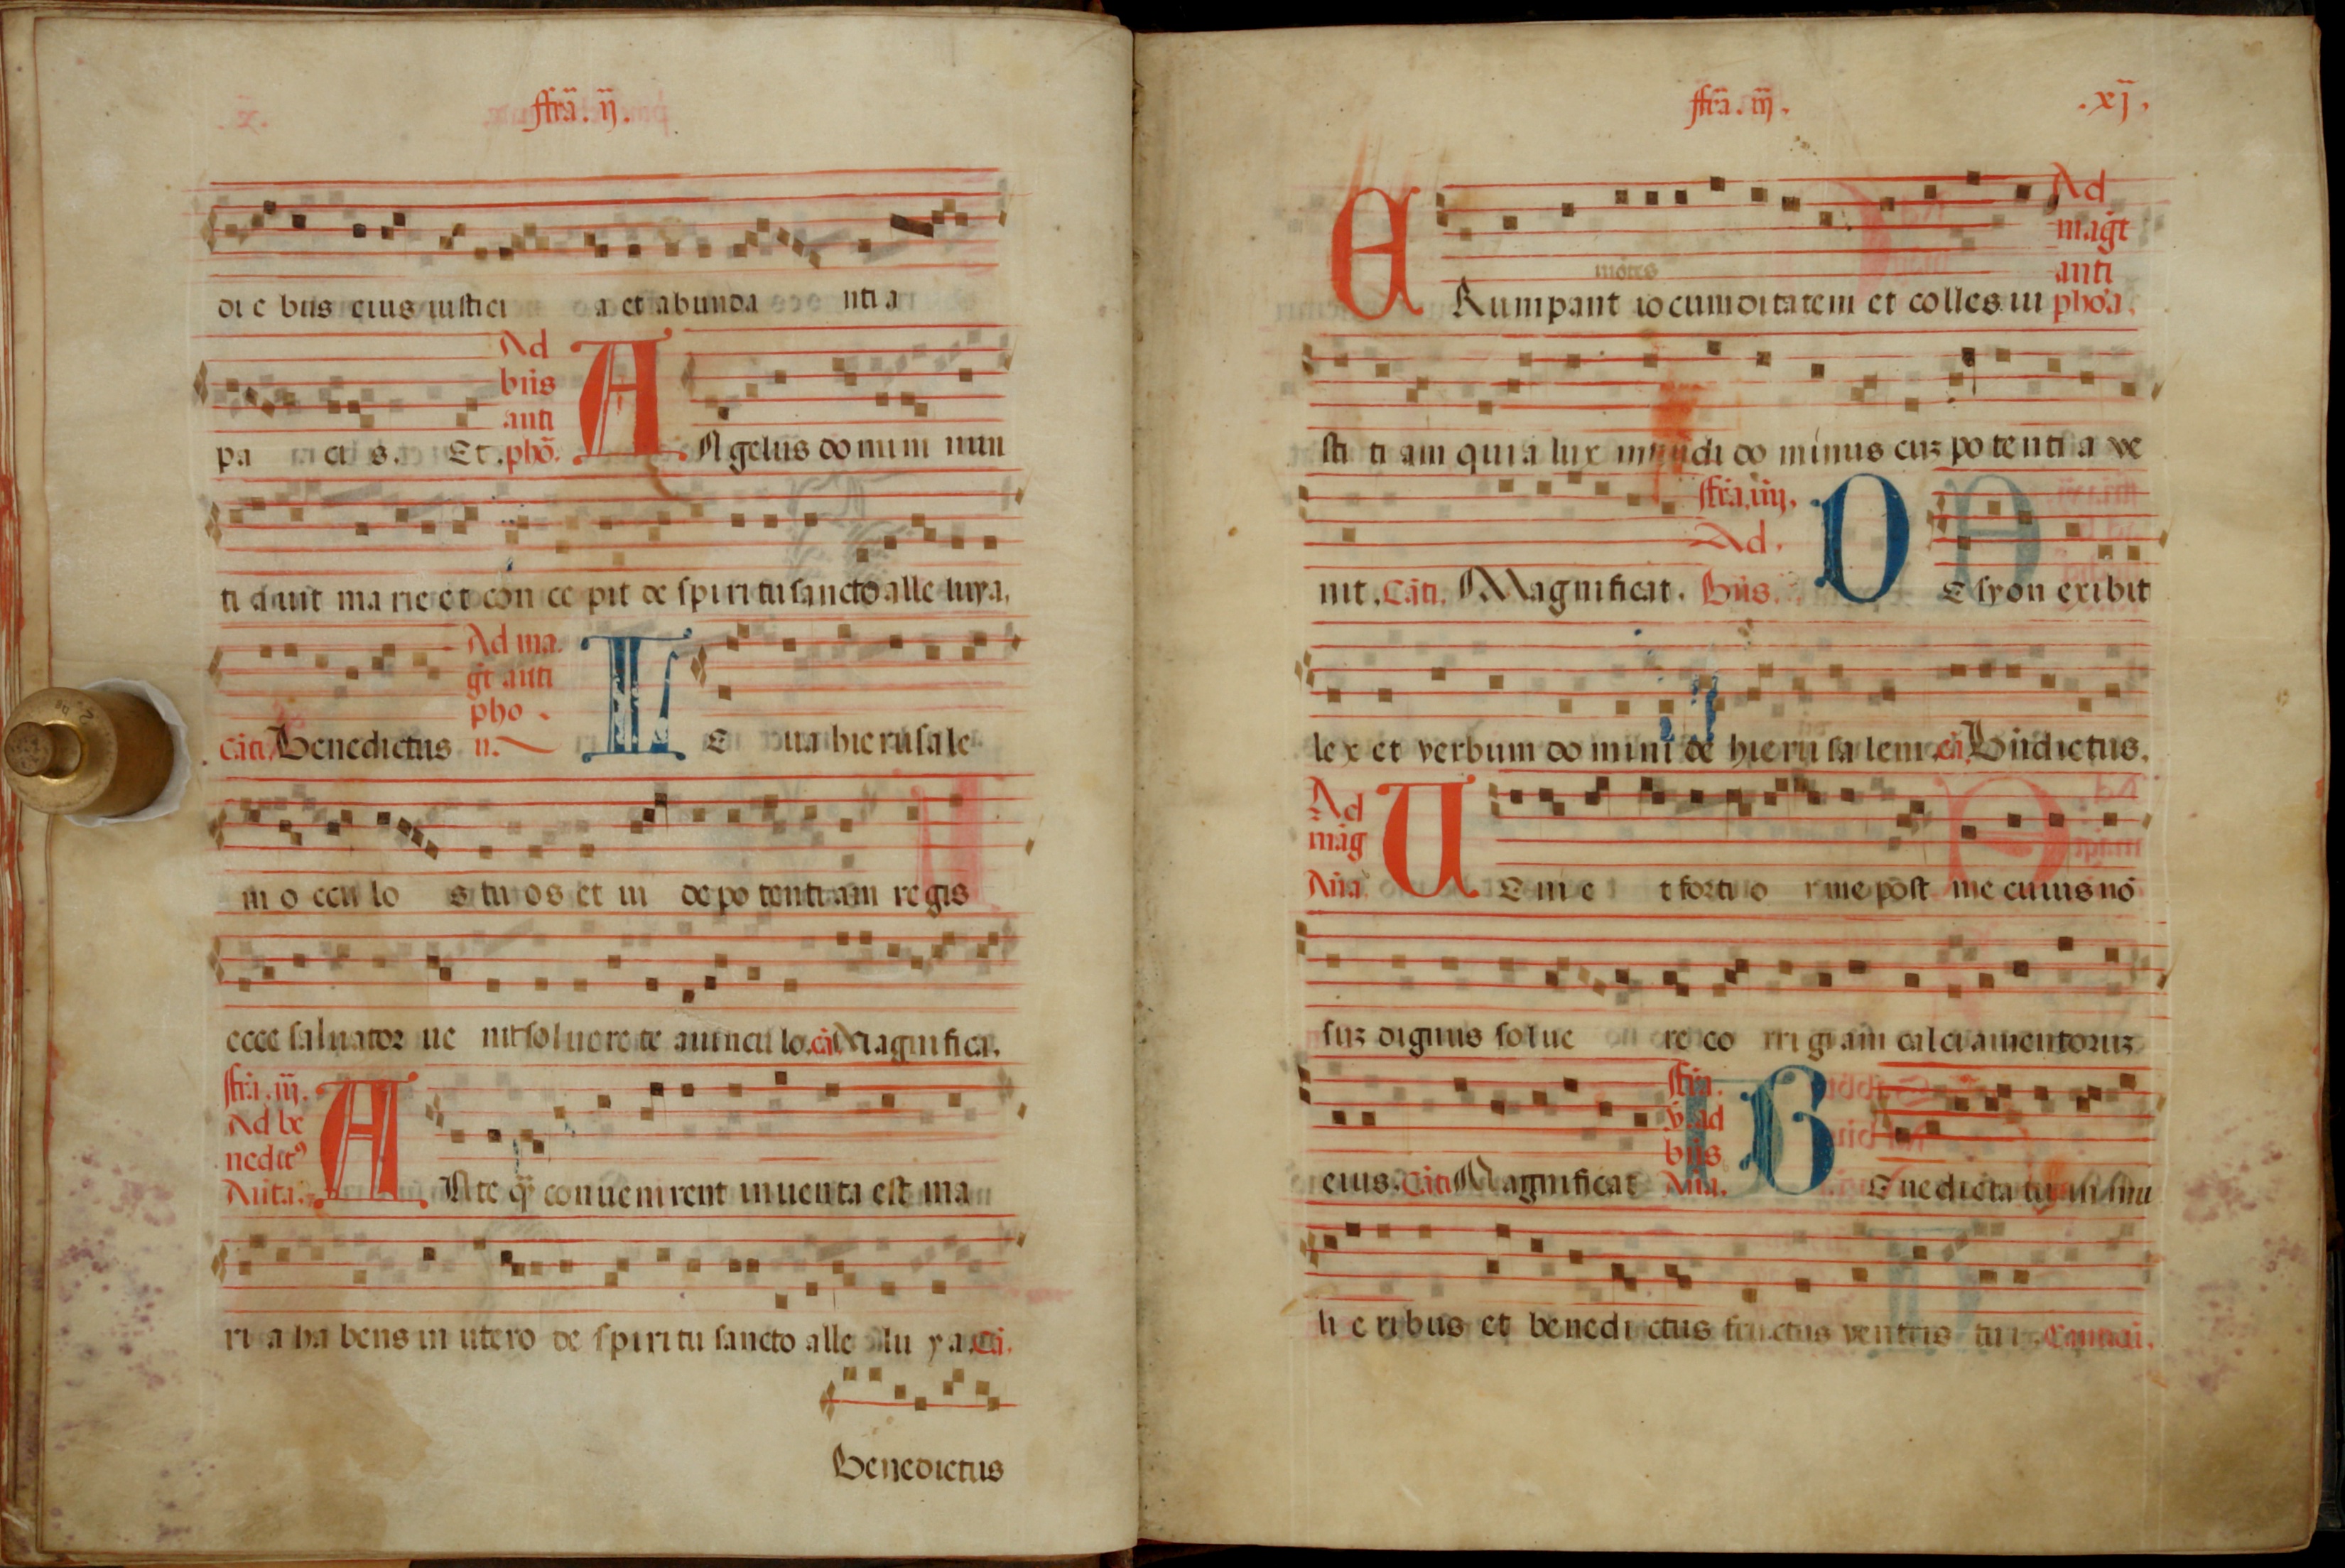 ffrã. ij.
di e bus eius iustici a et abunda nti a
Ad
bñs
anti
pa ci s. Et. phõ. A Ngelus domini nun
ti auit ma rie et con ce pit de spiritu sancto alle luya.
Ad ma.
gt anti
pho
Cãti. Benedictus n. L E ua hierusale
m o ccu lo s tu os et ui de po tenti am regis
ecce saluator ue nit soluere te a uincu lo. cã Magnifica.
ffrã. iij.
Ad be
nedict⁹
Añta. A Nte q̃ conuenirent inuenta est ma
ri a ha bens in utero de spiritu sancto alle lu ya. Cã.
Benedictus
ffrã. iij. .xj.
Ad
magt
anti
montes
E Rumpant iocunditatem et colles iu phoa.
sti ti am quia lux mundi do minus cuz po tenti a ve
ffrã. iiij.
Ad.
nit. Cãti. Magnificat. Bñs. D E syon exibit
lex et verbum do mini de hieru sa lem. cã. Bñdictus.
Ad
mag
Aña U E ni e t forti o r me post me cuius nõ
suz dignus solue re co rri giam calciamentoruz
ffria.
v. ad
bñs
eius. Cãti Magnificat Aña. B E nedicta tu in mu
li e ribus et benedi ctus fructus ventris tu i. Cantici.